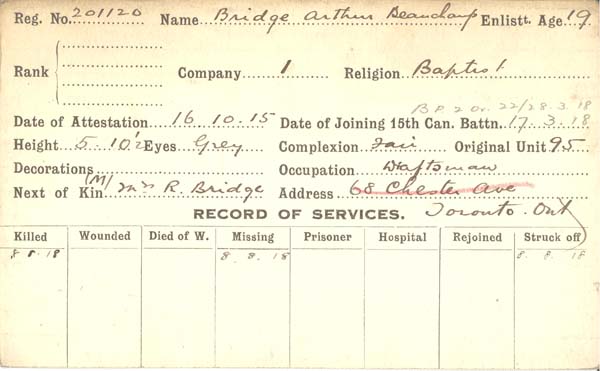 Reg. No. 201120 Name Bridge Arthur Beauchamp Enlistt. Age 19
Rank Company 1 Religion Baptist
B.P. 2 Or. 22/28.3.18
Date of Attestation 16.10.15 Date of Joining 15th Can. Battn. 17.3.18
Height 5.10½ Eyes Grey Complexion Fair Original Unit 95
Decorations Occupation Draftsman
Next of Kin (M) Mrs R. Bridge Address 68 Chester Ave
RECORD OF SERVICES. Toronto. Ont
Killed Wounded Died of W. Missing Prisoner Hospital Rejoined Struck off
8 8.18 8.8.18 8.8.18